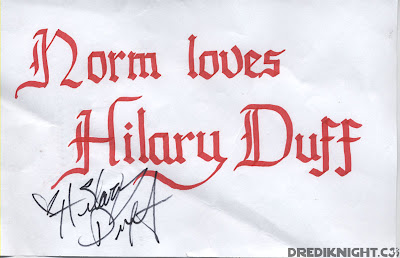 Norm loves
Hilary Duff
Hilary
Duff
DREDIKNIGHT.C